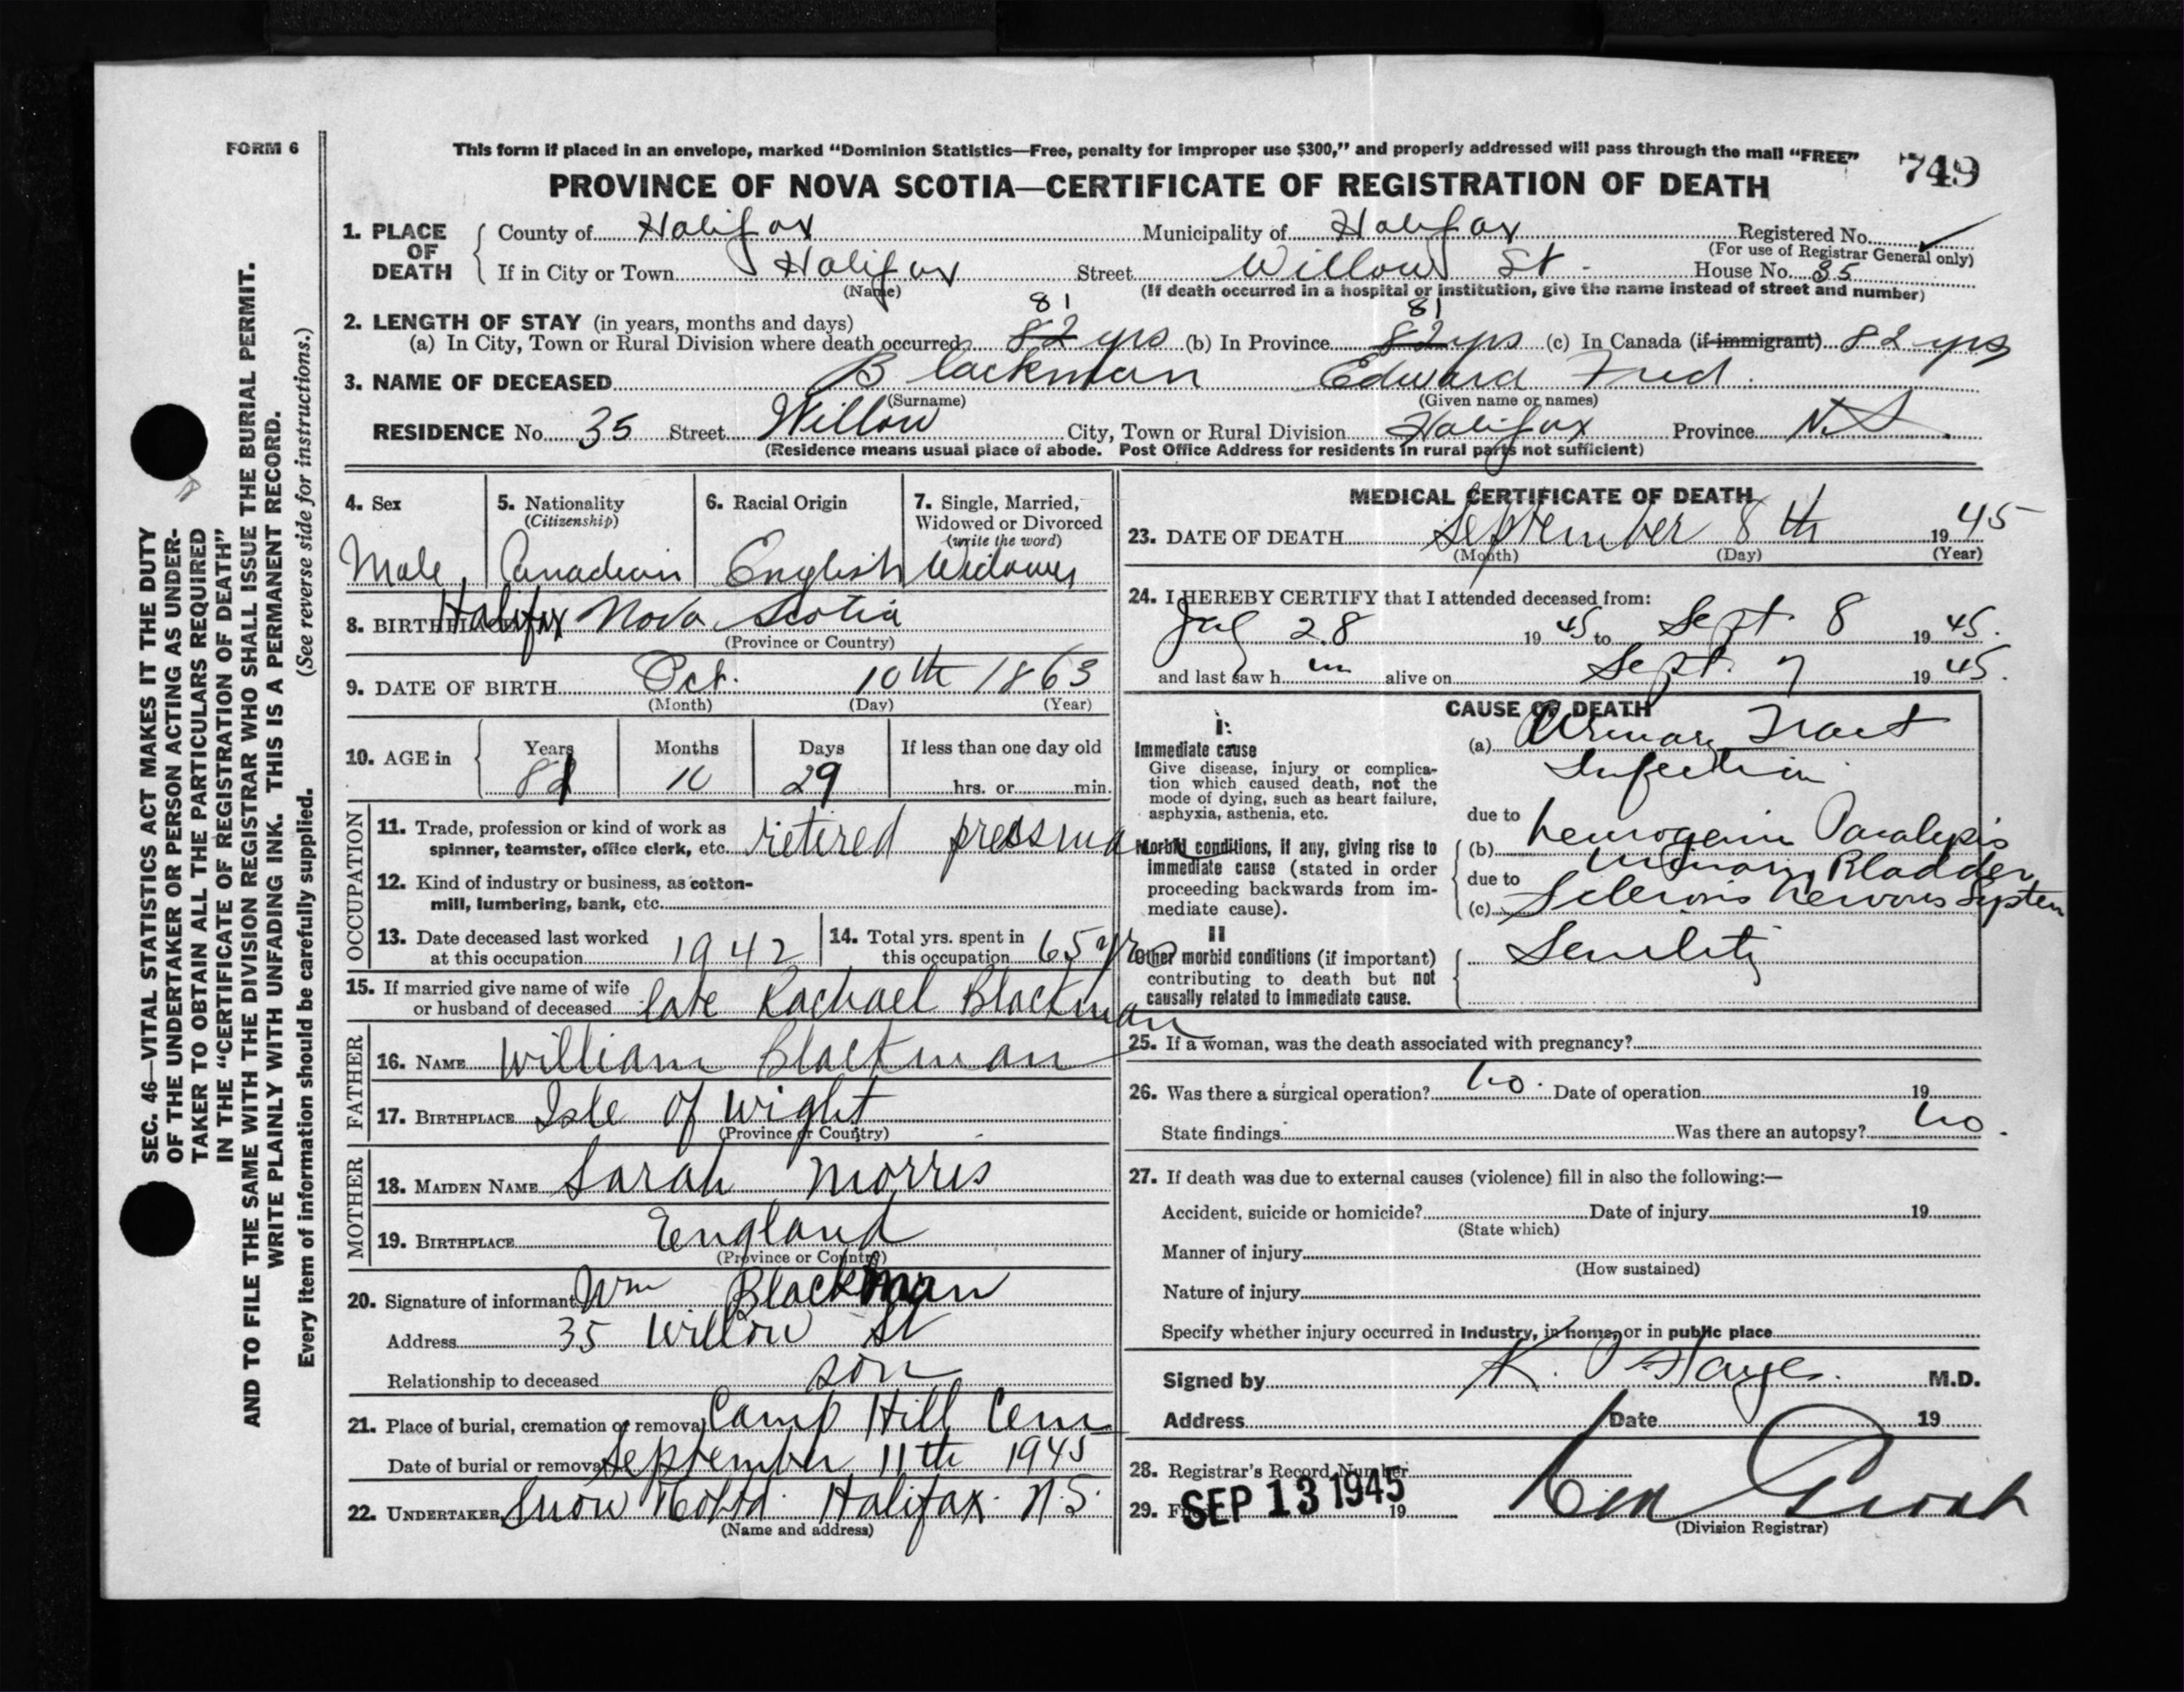 FORM 6
This form if placed in an envelope, marked “Dominion Statistics—Free, penalty for improper use $300,” and properly addressed will pass through the mail “FREE”
749
PROVINCE OF NOVA SCOTIA—CERTIFICATE OF REGISTRATION OF DEATH
1. PLACE OF DEATH
County of Halifax Municipality of Halifax Registered No.
(For use of Registrar General only)
If in City or Town Halifax Street Willow St. House No. 35
(Name) (If death occurred in a hospital or institution, give the name instead of street and number)
2. LENGTH OF STAY (in years, months and days) 81 81
(a) In City, Town or Rural Division where death occurred 82 yrs (b) In Province 82 yrs (c) In Canada (if immigrant) 82 yrs
3. NAME OF DECEASED Blackman Edward Fred.
(Surname) (Given name or names)
RESIDENCE No. 35 Street Willow City, Town or Rural Division Halifax Province N.S.
(Residence means usual place of abode. Post Office Address for residents in rural parts not sufficient)
4. Sex
Male
5. Nationality
(Citizenship)
Canadian
6. Racial Origin
English
7. Single, Married, Widowed or Divorced
(write the word)
Widower
8. BIRTHPLACE Halifax Nova Scotia
(Province or Country)
9. DATE OF BIRTH Oct. 10th 1863
(Month) (Day) (Year)
10. AGE in
Years Months Days If less than one day old
81 10 29 hrs. or min.
OCCUPATION
11. Trade, profession or kind of work as
spinner, teamster, office clerk, etc. retired pressman
12. Kind of industry or business, as cotton-
mill, lumbering, bank, etc.
13. Date deceased last worked
at this occupation 1942
14. Total yrs. spent in
this occupation 65 yrs
15. If married give name of wife
or husband of deceased late Rachael Blackman
FATHER
16. NAME William Blackman
17. BIRTHPLACE Isle of Wight
(Province or Country)
MOTHER
18. MAIDEN NAME Sarah Morris
19. BIRTHPLACE England
(Province or Country)
20. Signature of informant Wm Blackman
Address 35 Willow St
Relationship to deceased son
21. Place of burial, cremation or removal Camp Hill Cem
Date of burial or removal September 11th 1945
22. UNDERTAKER Snow Halifax. N.S.
(Name and address)
MEDICAL CERTIFICATE OF DEATH
23. DATE OF DEATH September 8th 1945
(Month) (Day) (Year)
24. I HEREBY CERTIFY that I attended deceased from:
28 1945 to Sept. 8 1945.
and last saw h im alive on Sept. 7 1945.
CAUSE OF DEATH
I.
Immediate cause
Give disease, injury or complica-
tion which caused death, not the
mode of dying, such as heart failure,
asphyxia, asthenia, etc.
(a) Urinary Tract
Infection
due to
Morbid conditions, if any, giving rise to
immediate cause (stated in order
proceeding backwards from im-
mediate cause).
(b) Neurogenic Paralysis
Urinary Bladder
due to
(c) Sclerosis Nervous System
II
Other morbid conditions (if important)
contributing to death but not
causally related to immediate cause.
Senility
25. If a woman, was the death associated with pregnancy?
26. Was there a surgical operation? no. Date of operation 19
State findings Was there an autopsy? no.
27. If death was due to external causes (violence) fill in also the following:—
Accident, suicide or homicide? Date of injury 19
(State which)
Manner of injury
(How sustained)
Nature of injury
Specify whether injury occurred in Industry, in home, or in public place
Signed by K. Hayes. M.D.
Address Date 19
28. Registrar's Record Number
29. Filed SEP 13 1945 19
(Division Registrar)
SEC. 46—VITAL STATISTICS ACT MAKES IT THE DUTY
OF THE UNDERTAKER OR PERSON ACTING AS UNDER-
TAKER TO OBTAIN ALL THE PARTICULARS REQUIRED
IN THE “CERTIFICATE OF REGISTRATION OF DEATH”
AND TO FILE THE SAME WITH THE DIVISION REGISTRAR WHO SHALL ISSUE THE BURIAL PERMIT.
WRITE PLAINLY WITH UNFADING INK. THIS IS A PERMANENT RECORD.
Every item of information should be carefully supplied. (See reverse side for instructions.)